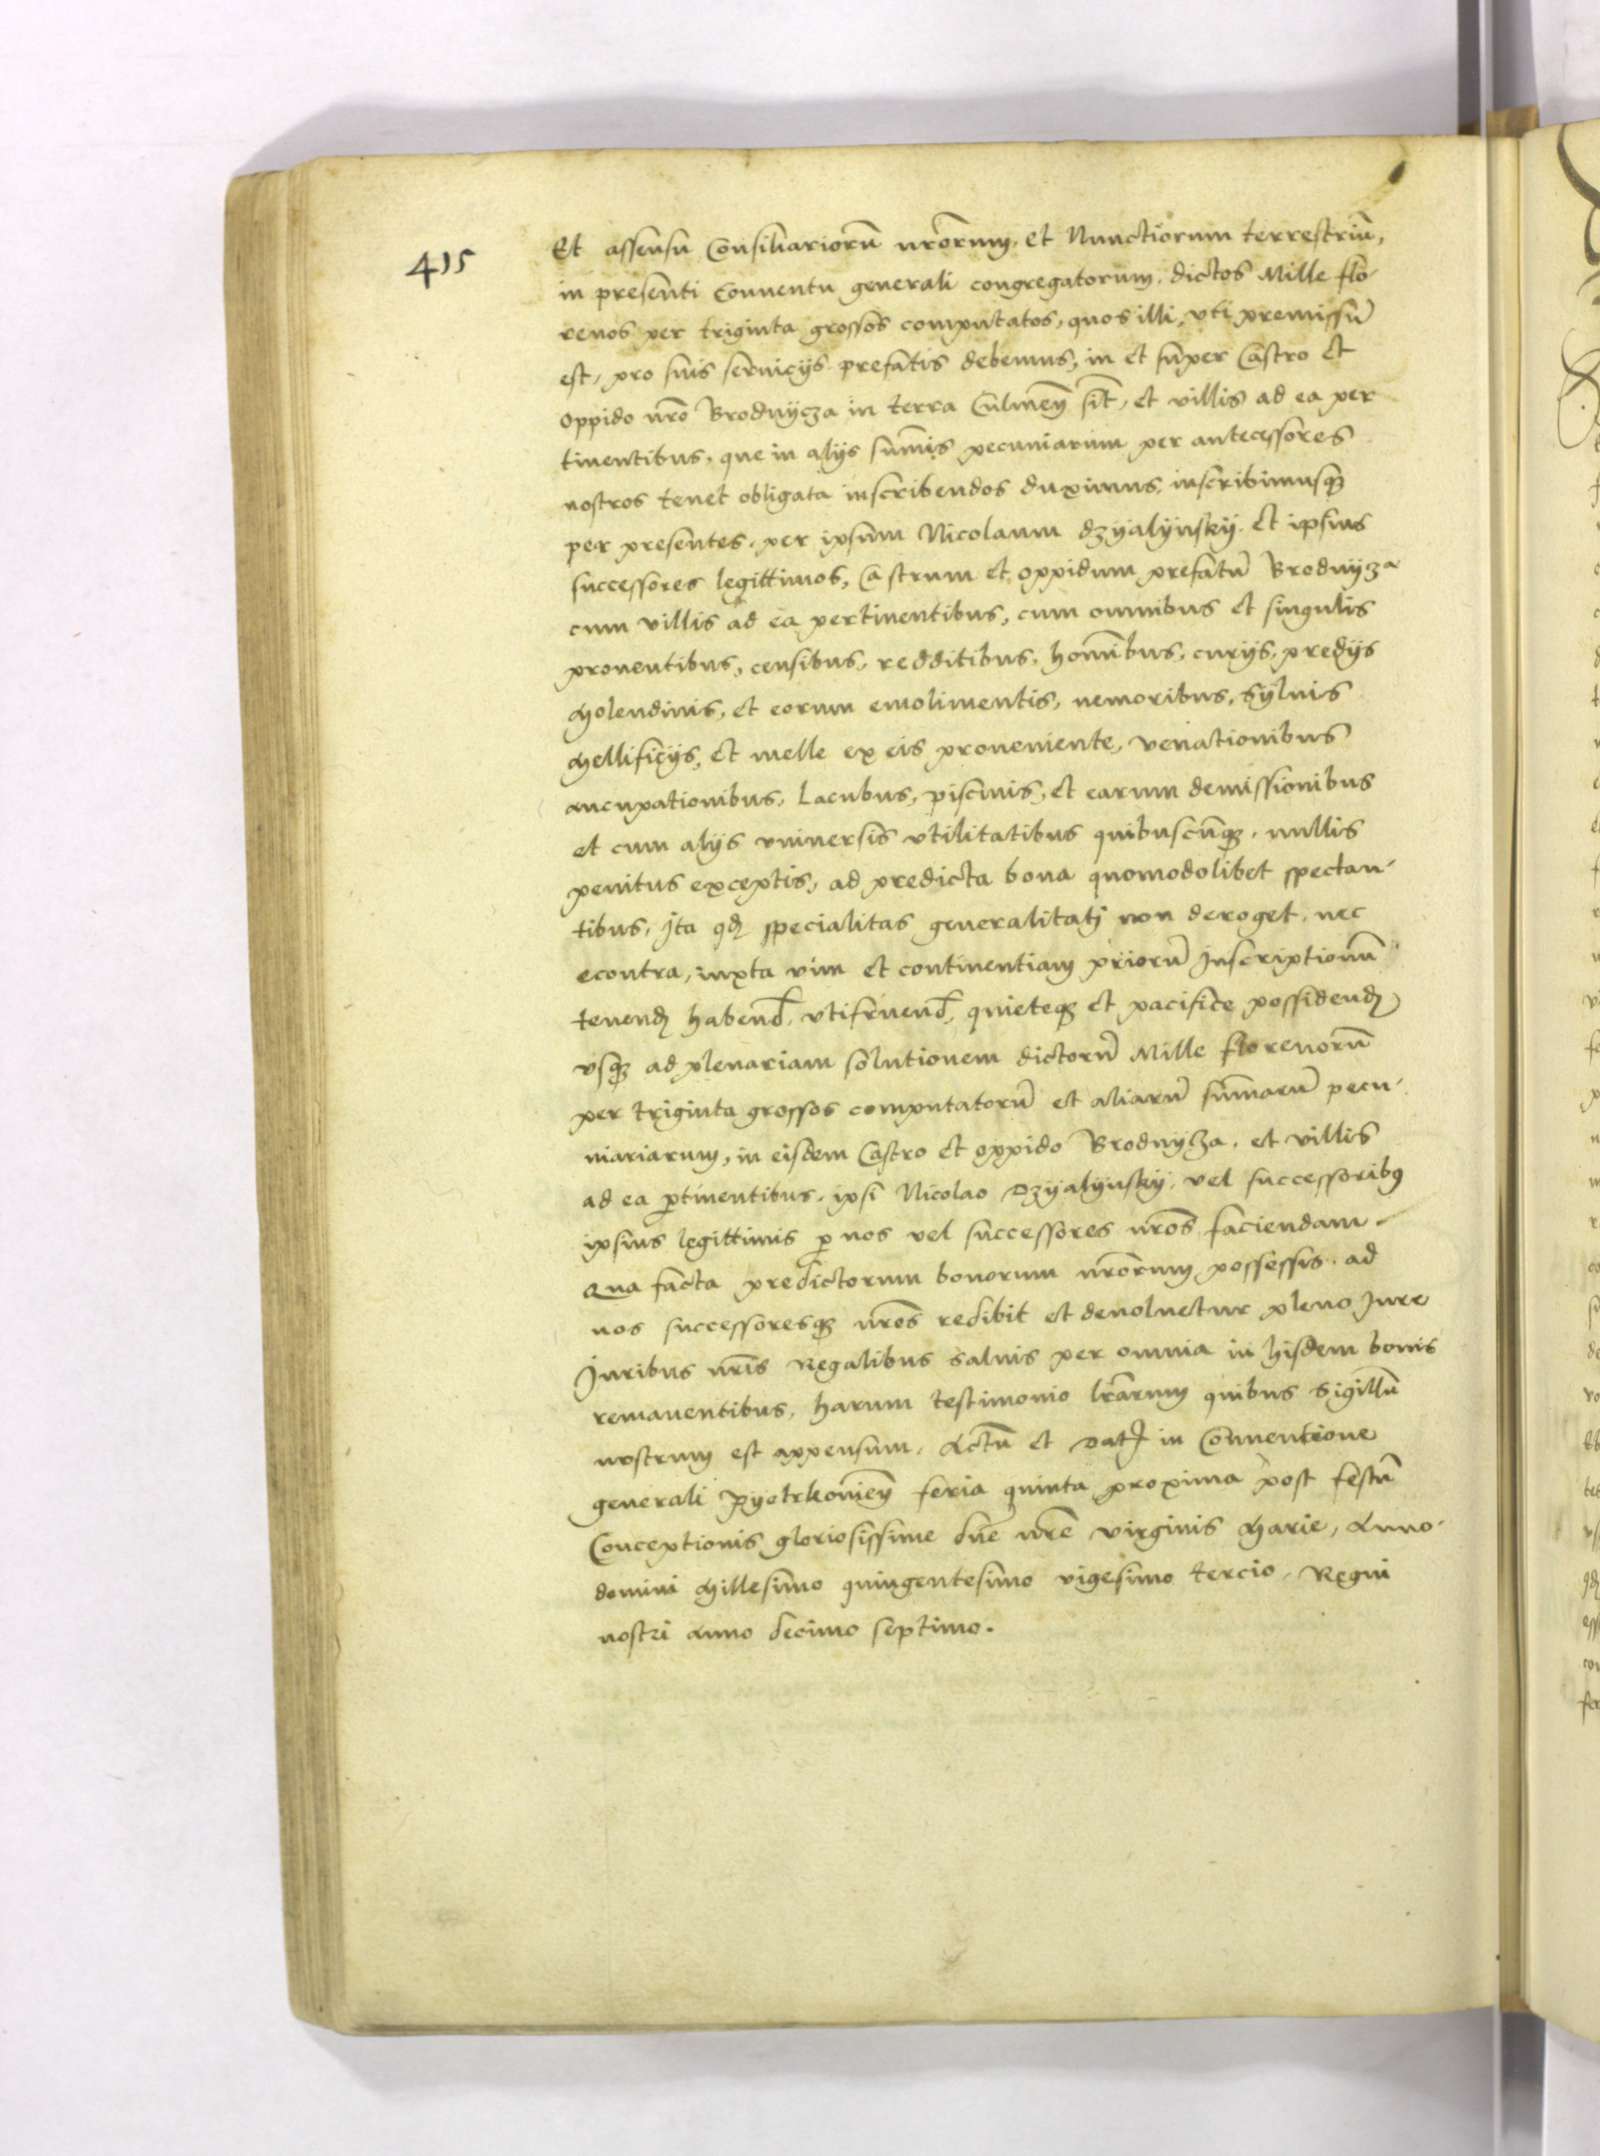 415
Et assensu Consiliariorū nrõrum, et Nunctiorum terrestriū,
in presenti Conuentu generali congregatorum, dictos Mille flo-
renos per triginta grossos computatos, quos illi, vti premissū
est, pro suis seruicijs prefatis debemus, in et super Castro et
Oppido nrõ Brodnÿcza in terra Culmeñ sit, et villis ad ea per
tinentibus, que in alijs sum̃is pecuniarum per antecessores
nostros tenet obligata inscribendos duximus, inscribimusqꝫ
per presentes, per ipsum Nicolaum dzyalÿnskÿ et ipsius
successores legittimos, Castrum et oppidum prefatū Brodnÿcza
cum villis ad ea pertinentibus, cum omnibus et singulis
prouentibus, censibus, redditibus, hom̃ibus, curijs, predijs
Molendinis, et eorum emolimentis, nemoribus, Syluis
Mellificijs, et melle ex eis proueniente, venationibus
aucupationibus, Lacubus, piscinis, et earum demissionibus
et cum alijs vniuersis vtilitatibus quibuscūqꝫ, nullis
penitus exceptis, ad predicta bona quomodolibet spectan-
tibus, Ita qđ specialitas generalitati non deroget, nec
econtra, iuxta vim et continentiam priorū Inscriptionū
tenenđ habenđ, vtifruenđ, quieteqꝫ et pacifice possidenđ
vsqꝫ ad plenariam solutionem dictorū Mille florenorū
per triginta grossos computatorū et aliarū sum̃arū pecu-
niariarum, in eisdem Castro et oppido Brodnÿcza, et villis
ad ea ꝑtinentibus, ipsi Nicolao Dzyalÿnskÿ, vel successoribꝰ
ipsius legittimis ꝑ nos vel successores nrõs faciendam.
Qua facta predictorum bonorum nrõrum possessis, ad
nos successoresqꝫ nrõs redibit et deuoluetur pleno Jure
Juribus nrĩs Regalibus saluis per omnia in hisdem bonis
remanentibus, harum testimonio lrãrum quibus Sigillū
nostrum est appensum. Actū et Datꝭ in Conuentione
generali Pyotrkouieñ feria quinta proxima post festū
Conceptionis gloriosissime dñe nrẽ virginis Marie, Anno
domini Millesimo quingentesimo vigesimo tercio, Regni
nostri Anno decimo septimo.